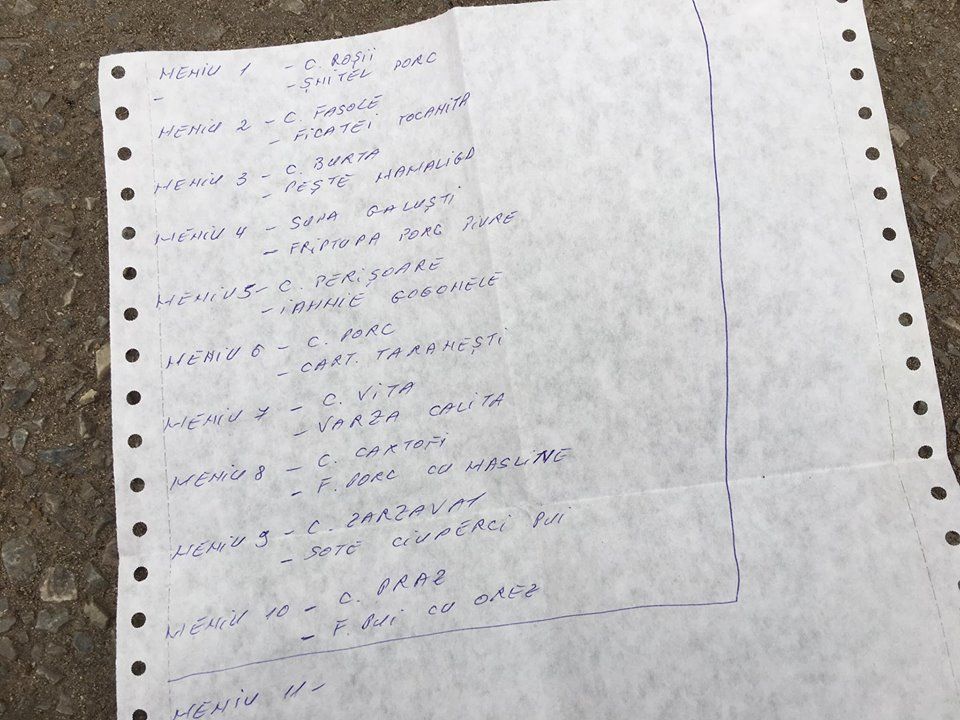 MENIU 1 - C. ROȘII
- - ȘNITEL PORC
MENIU 2 - C. FASOLE
- FICATEI TOCANITA
MENIU 3 - C. BURTA
- PEȘTE MAMALIGA
MENIU 4 - SUPA GALUȘTI
- FRIPTURA PORC PIVRE
MENIU 5 - C. PERIȘOARE
- IAHNIE GOGONELE
MENIU 6 - C. PORC
- CART. TARANEȘTI
MENIU 7 - C. VITA
- VARZA CALITA
MENIU 8 - C. CARTOFI
- F. PORC CU MASLINE
MENIU 9 - C. ZARZAVAT
- SOTE CIUPERCI PUI
MENIU 10 - C. PRAZ
- F. PUI CU OREZ
MENIU 11 -